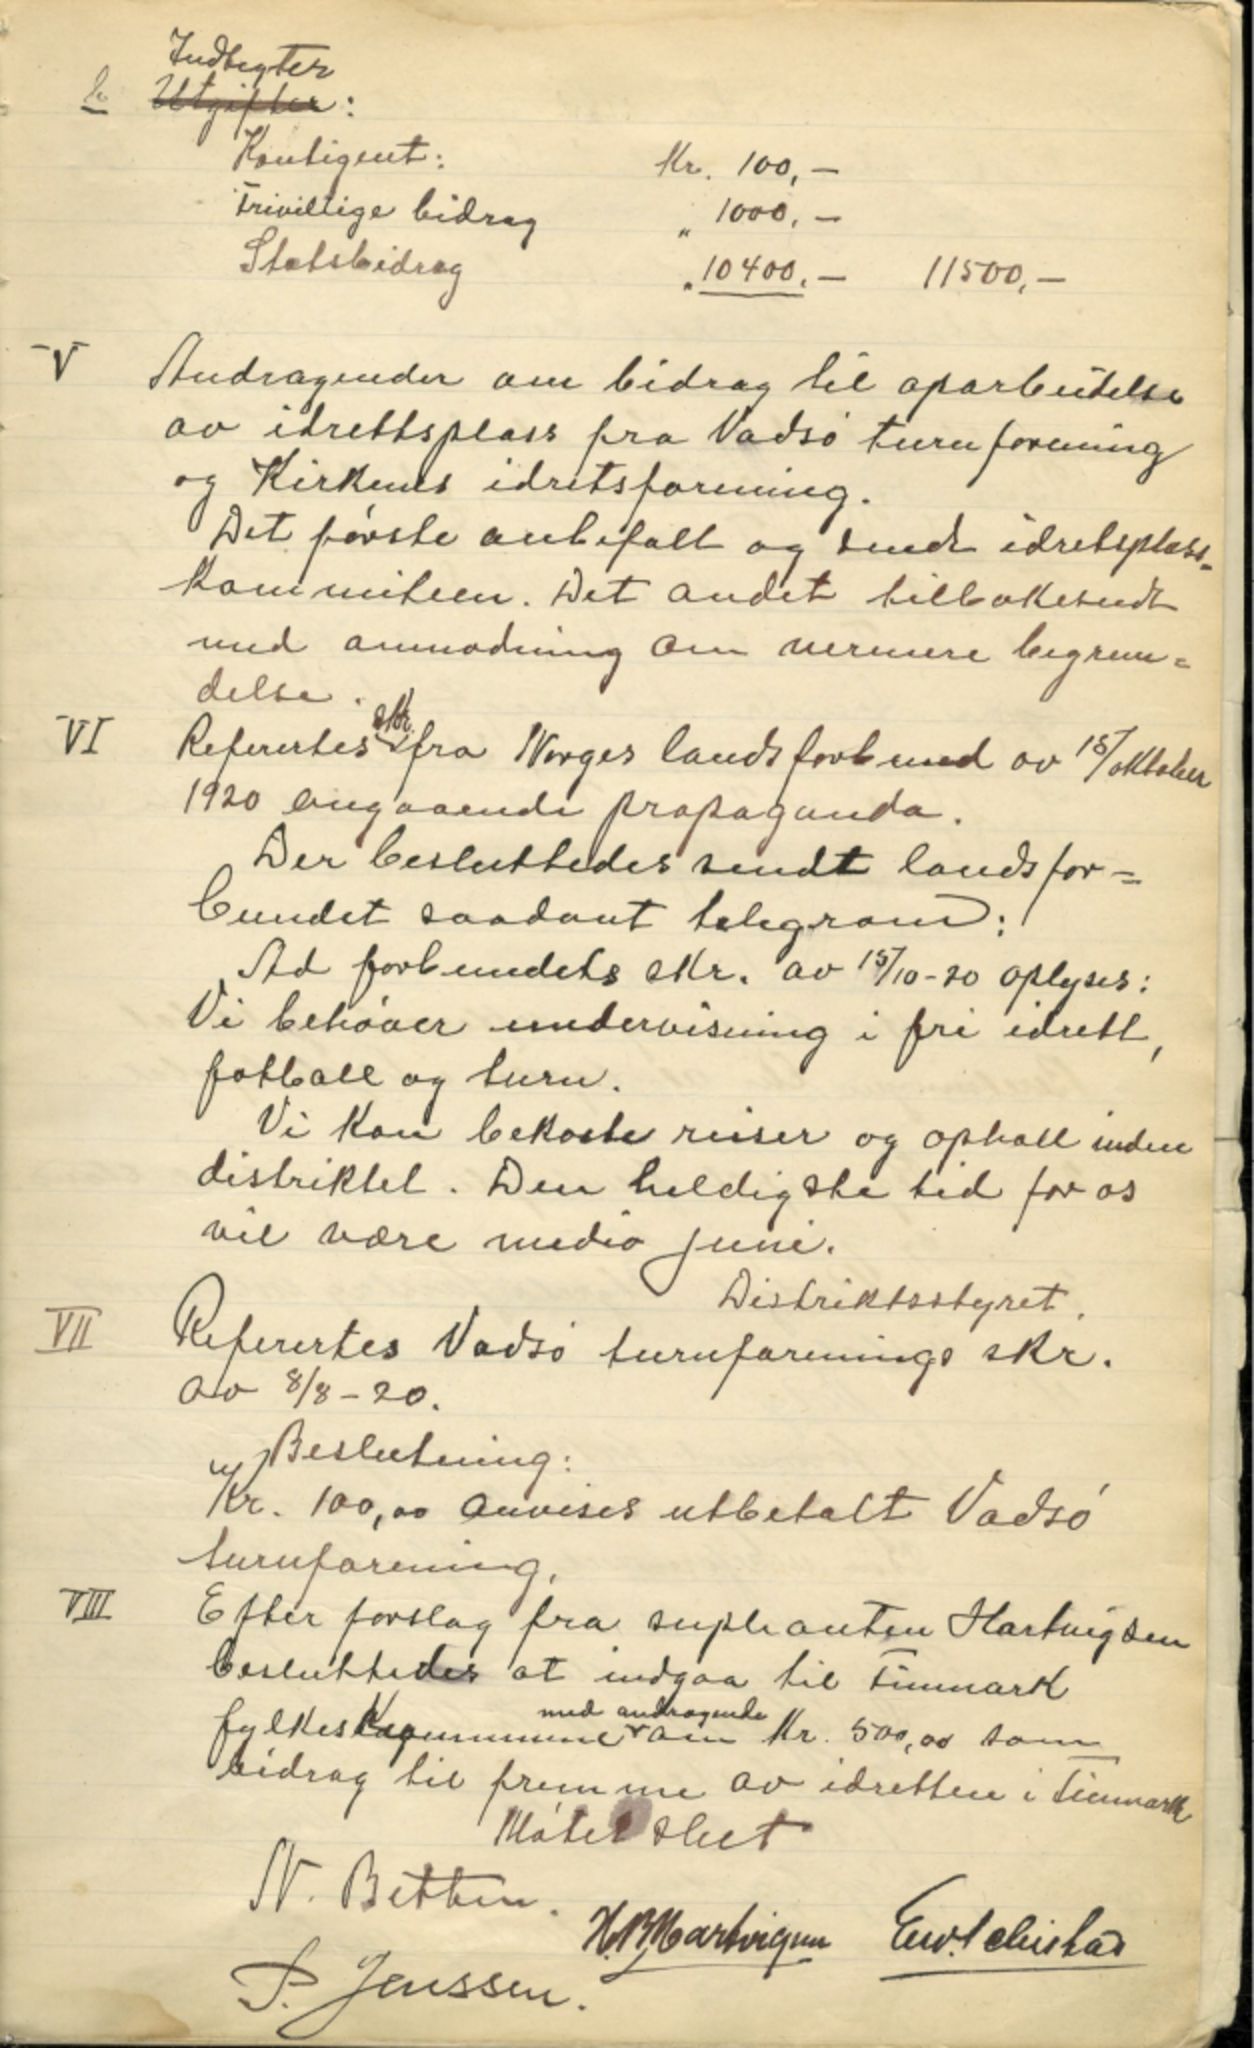 Indtegter
b. Utgifter:
Kontigent: Kr. 100,—
Frivillige bidrag „ 1000,—
Statsbidrag „ 10400,— 11500,—
V Andragender om bidrag til oparbeidelse
av idrettsplass fra Vadsö turnforening
og Kirkenes idretsforening.
Det förste anbefalt og sendt idretsplass-
kommiteen. Det andet tilbakesendt
med anmodning om nermere begrun=
delse.
VI Refertes skr. fra Norges landsforbund av 15/oktober
1920 angaaende propaganda.
Der besluttedes sendt landsfor=
bundet saadant telegram:
Ad forbundets skr. av 15/10-20 oplyses:
Vi behöver undervisning i fri idrett,
fotball og turn.
Vi kan bekoste reiser og ophall inden
distriktet. Den heldigste tid for os
vil være medio juni.
Distriktsstyret.
VII Refertes Vadsö turnforenings skr.
av 8/8-20.
Beslutning:
Kr. 100,00 anvises utbetalt Vadsö
turnforening.
VIII Efter forslag fra supleanten Hartvigsen
besluttedes at indgaa til Finmark
fylkeskommune med andragende om Kr. 500,00 som
bidrag til fremme av idretten i Finmark
Mötet slut
N. Betten.
H. M. Hartvigsen
P. Jenssen.